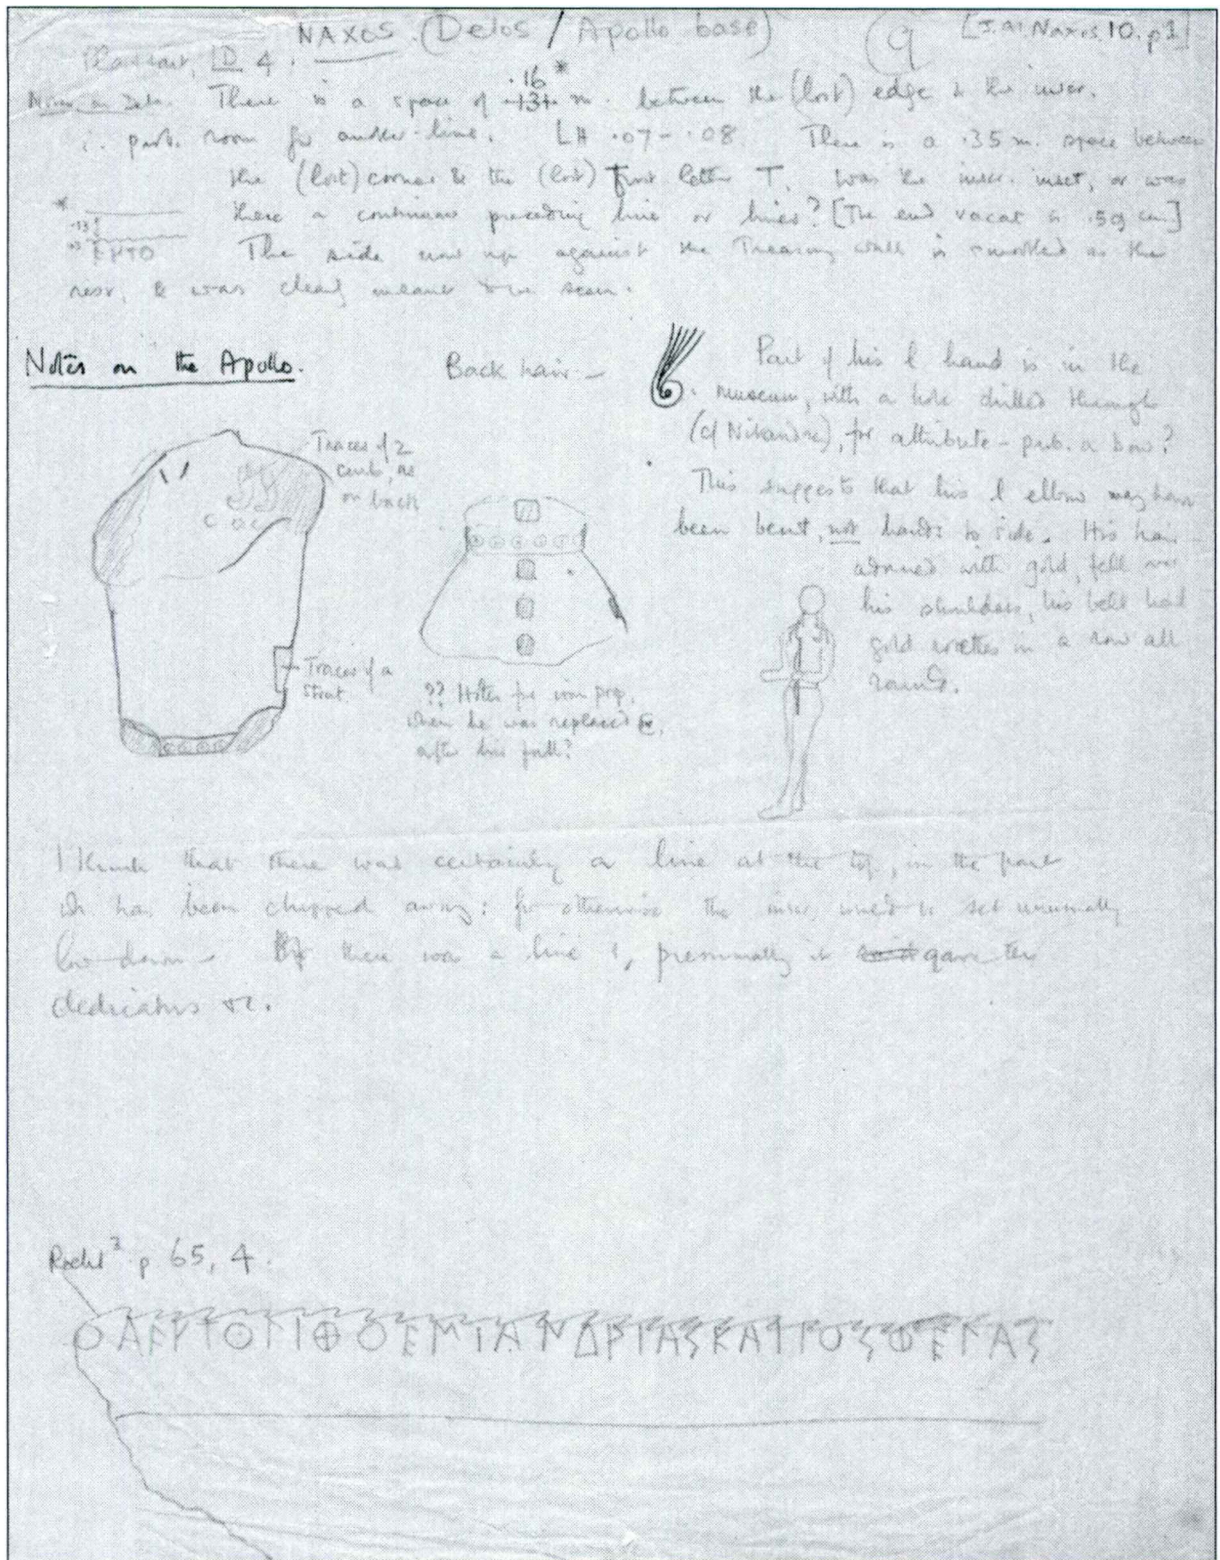 NAXOS. (Delos / Apollo base) 9 [J.at Naxos.10.p1]
Plassart, ID. 4.
Notes on Delos. There is a space of .16* m. between the (lost) edge & the inscr.
∴ prob. room for another line. LH .07-.08. There is a .35 m. space between
the (lost) corner & the (lost) first letter T. Was the inscr. inset, or was
there a continuous preceding line or lines? [The end vacat is .59 cm]
*
The side now up against the Treasury wall is smoothed as the
rest, & was clearly meant to be seen.
Notes on the Apollo.
Back hair –
Part of his l hand is in the
museum, with a hole drilled through
(cf Nikandre), for attribute – prob. a bow?
This suggests that his l elbow may have
been bent, not hands to side. His hair
adorned with gold, fell over
his shoulders, his belt had
gold rosettes in a row all
round.
Traces of 2
curls, as
on back
Traces of a
strut.
?? Holes for iron prop,
when he was replaced
after his fall?
I think that there was certainly a line at the top, in the part
wh. has been chipped away: for otherwise the inscr. would be set unusually
low down. If there was a line 1, presumably it gave the
dedicators &c.
Roehl³ p 65, 4.